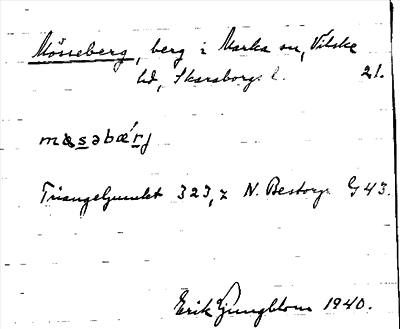 Mösseberg, berg i Marka sn, Vilske
hd, Skaraborgs l. 21.
mɵsəbærj
Triangelpunkt 323, z N. Bestorp G 43.
Erik Ljungblom 1940.